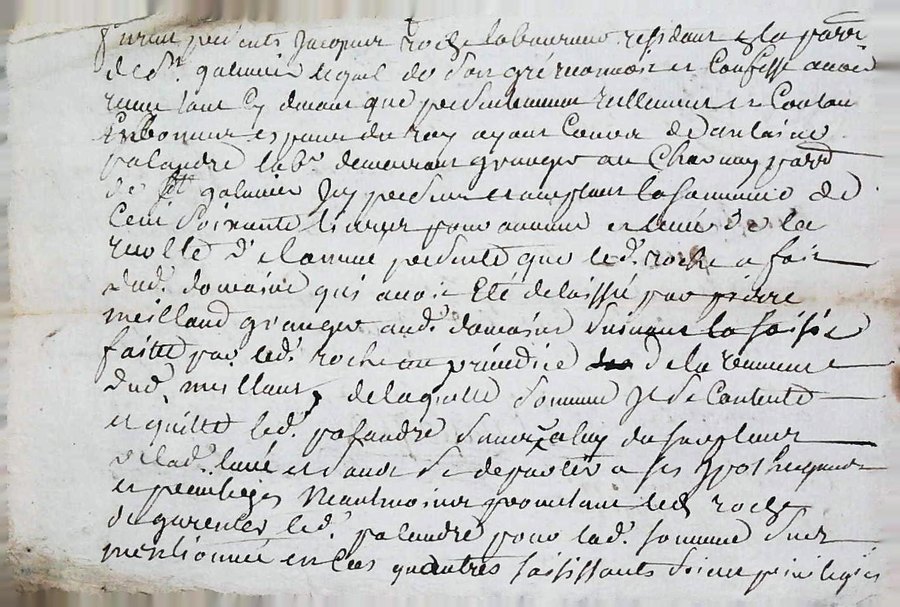 furent presents Jacques roche laboureur residant en la parr
de st galmier lequel de son gré reconnoit et confesse avoir
receu tant cy devant que presentement reellement et contan
en bonnes especes du roy ayant cours de antoine
palandre labr demeurant granger au Chavnay parr
de st galmier icy present et acceptant la somme de
Cent soixante livres pour et levée de la
recolte de lannée presente que led. roche a fait
dud. domaine qui avoit été delaissé par pierre
meilland granger aud. domaine suivant la saisie
faitte par led. roche au préjudice de la
dud. meilland, de laquelle somme il se contente
et quitte led. palandre
de lad. levée et sans se departir a ses hypotheques
et privileges Neantmoins promettant led. roche
de garentir led. palandre pour lad. somme susd.
mentionnée en cas quautres saisissants soient privilegiés